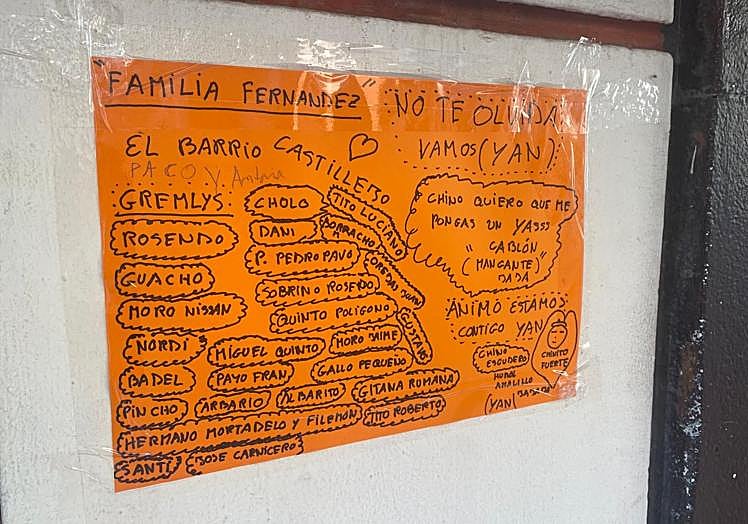 "FAMILIA FERNANDEZ"
NO TE OLVIDA
VAMOS (YAN)
EL BARRIO CASTILLEJO
PACO Y Antonia
GREMLYS
ROSENDO
GUACHO
MORO NISSAN
NORDI
BADEL
PINCHO
HERMANO MORTADELO Y FILEMON
SANTI
JOSE CARNICERO
CHOLO
DANI
P. PEDRO PAVO
SOBRINO ROSENDO
QUINTO POLIGONO
MIGUEL QUINTO
MORO JAIME
PAYO FRAN
GALLO PEQUEÑO
ARBARIO
ALBARITO
GITANA RUMANA
TITO ROBERTO
TITO LUCIANO
BORRACHO
GUSTAVO
CHINO QUIERO QUE ME
PONGAS UN YASSS
"CABLÓN
(MANGANTE)"
DADA
ÁNIMO ESTAMOS
CONTIGO YAN
CHINO
ESCUDERO
CHIVITO
FUERTE
(YAN)